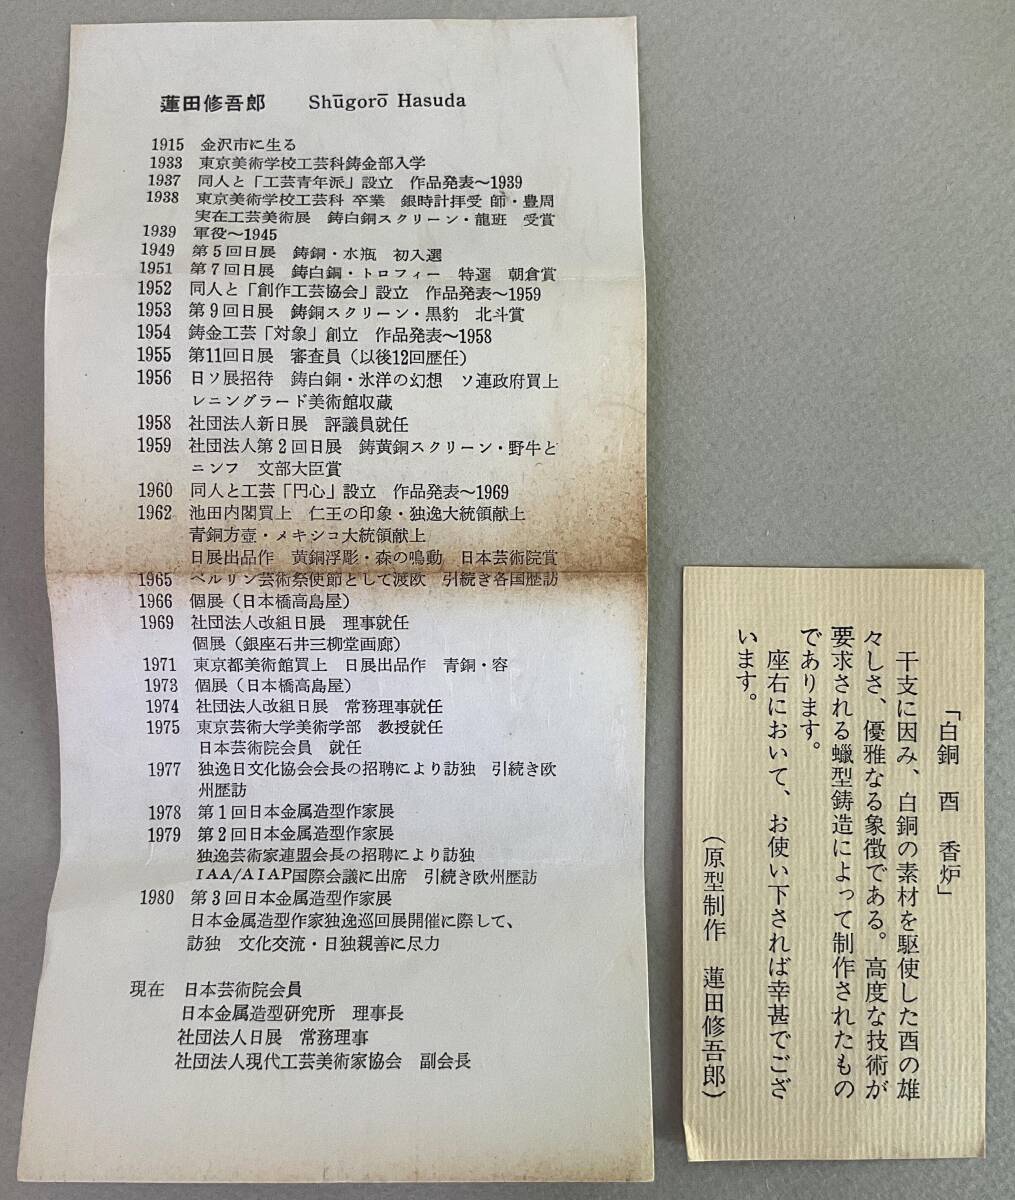 蓮田修吾郎　Shūgorō Hasuda
1915　金沢市に生る
1933　東京美術学校工芸科鋳金部入学
1937　同人と「工芸青年派」設立　作品発表〜1939
1938　東京美術学校工芸科 卒業　銀時計拝受 師・豊周
実在工芸美術展　鋳白銅スクリーン・龍班　受賞
1939　軍役〜1945
1949　第5回日展　鋳銅・水瓶　初入選
1951　第7回日展　鋳白銅・トロフィー　特選　朝倉賞
1952　同人と「創作工芸協会」設立　作品発表〜1959
1953　第9回日展　鋳銅スクリーン・黒豹　北斗賞
1954　鋳金工芸「対象」創立　作品発表〜1958
1955　第11回日展　審査員（以後12回歴任）
1956　日ソ展招待　鋳白銅・氷洋の幻想　ソ連政府買上
レニングラード美術館収蔵
1958　社団法人新日展　評議員就任
1959　社団法人第2回日展　鋳黄銅スクリーン・野牛と
ニンフ　文部大臣賞
1960　同人と工芸「円心」設立　作品発表〜1969
1962　池田内閣買上　仁王の印象・独逸大統領献上
青銅方壺・メキシコ大統領献上
日展出品作　黄銅浮彫・森の鳴動　日本芸術院賞
1965　ベルリン芸術祭使節として渡欧　引続き各国歴訪
1966　個展（日本橋高島屋）
1969　社団法人改組日展　理事就任
個展（銀座石井三柳堂画廊）
1971　東京都美術館買上　日展出品作　青銅・容
1973　個展（日本橋高島屋）
1974　社団法人改組日展　常務理事就任
1975　東京芸術大学美術学部　教授就任
日本芸術院会員　就任
1977　独逸日文化協会会長の招聘により訪独　引続き欧
州歴訪
1978　第1回日本金属造型作家展
1979　第2回日本金属造型作家展
独逸芸術家連盟会長の招聘により訪独
IAA/AIAP国際会議に出席　引続き欧州歴訪
1980　第3回日本金属造型作家展
日本金属造型作家独逸巡回展開催に際して、
訪独　文化交流・日独親善に尽力
現在　日本芸術院会員
日本金属造型研究所　理事長
社団法人日展　常務理事
社団法人現代工芸美術家協会　副会長
「白銅　酉　香炉」
干支に因み、白銅の素材を駆使した酉の雄
々しさ、優雅なる象徴である。高度な技術が
要求される蠟型鋳造によって制作されたもの
であります。
座右において、お使い下されば幸甚でござ
います。
（原型制作　蓮田修吾郎）